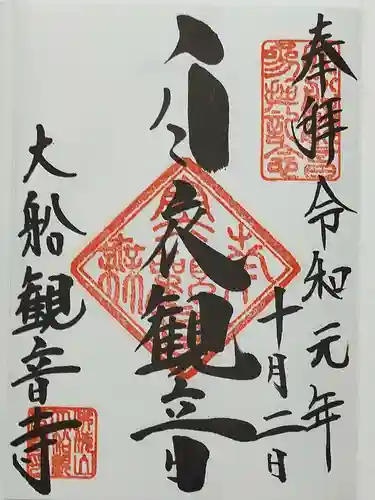 奉拜
令和元年
十月二日
白衣観音
大船観音寺